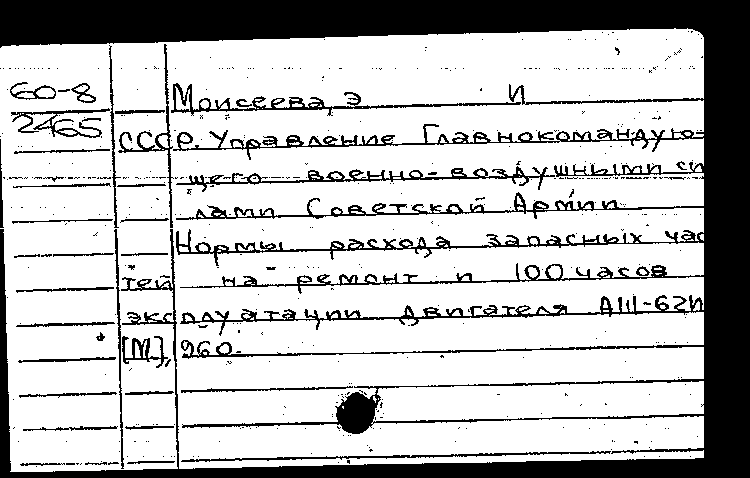 60-8 Моисеева, Э И
2465 СССР. Управление Главнокомандую-
щего военно-воздушными си
лами Советской Армии
Нормы расхода запасных час
тей на ремонт и 100 часов
эксплуатации двигателя АШ-62И
[М], 1960.